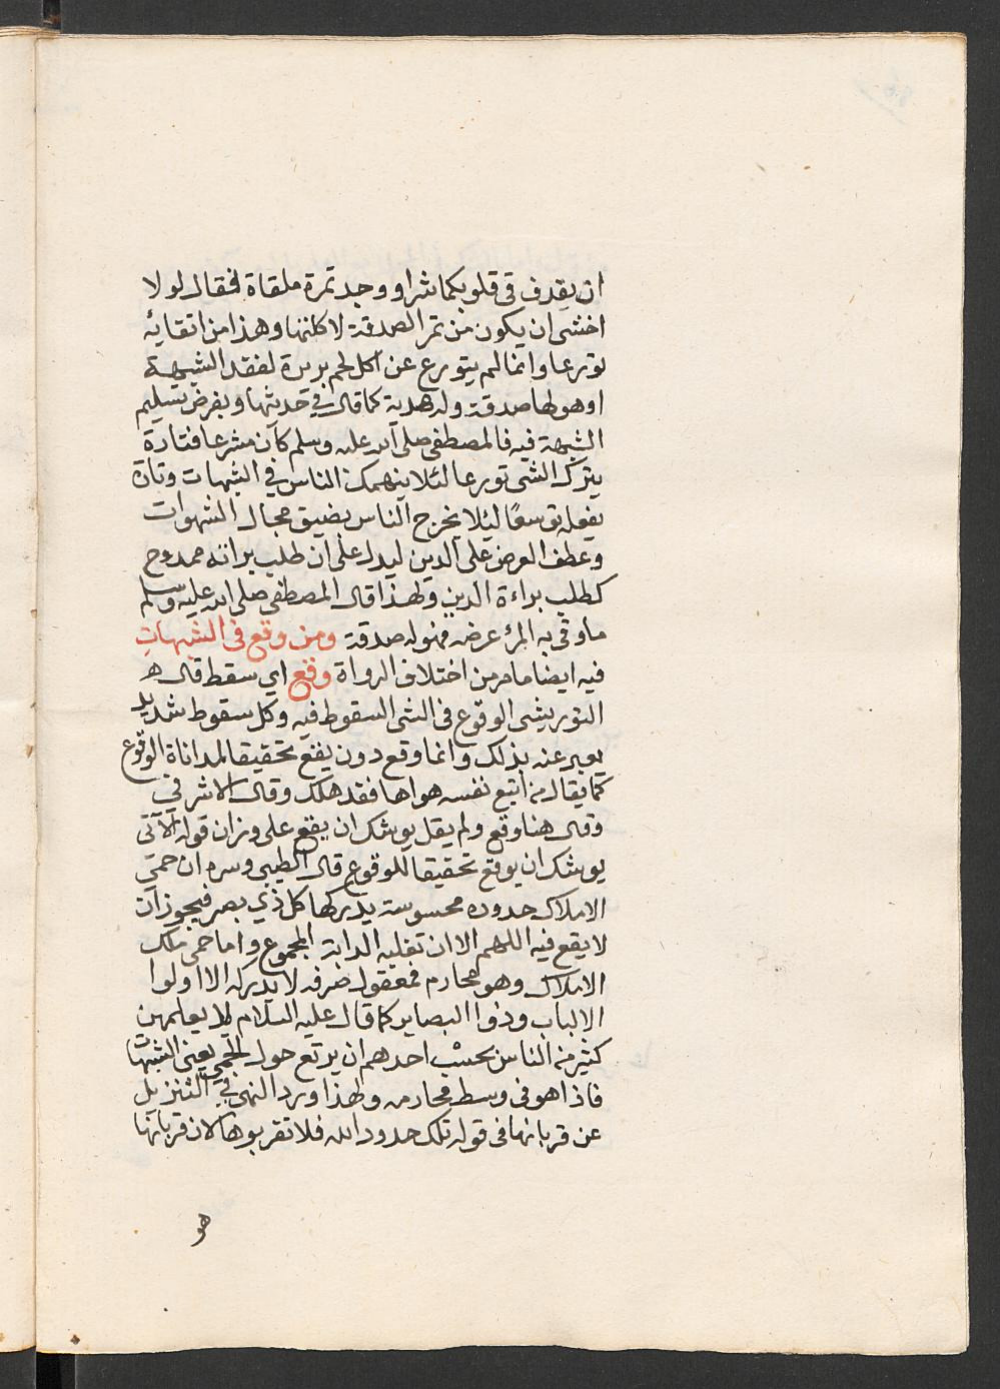 ان يقدف في قلوبكما شرا ووجد تمرة ملقاة فقال لولا
اخشى ان يكون من تمر الصدقة لاكلتها وهذا من اتقائه
تورعا وانما لم يتورع عن اكل لحم بريرة لفقد الشبهة
اوهولها صدقة وله هدية كما قال في حديثها وبفرض تسليم
الشبهة فيه فالمصطفى صلى الله عليه وسلم كان مشرعا فتارة
يترك الشى تورعا لئلا ينهمك الناس في الشبهات وتارة
يفعله توسعًا لئلا يحرج الناس بضيق مجال الشهوات
وعطف العرض على الدين ليدل على ان طلب برائه ممدوح
كطلب براءة الدين ولهذا قال المصطفى صلى الله عليه وسلم
ماوقى به المرء عرضه فهو له صدقة ومن وقع فى الشبهات
فيه ايضا مامر من اختلاف الرواة وقع اي سقط قال
التوربشى الوقوع فى الشى السقوط فيه وكل سقوط شديد
يعبر عنه بذلك وانما وقع دون يقع تحقيقا لمداناة الوقوع
كما يقال من اتبع نفسه هواها فقد هلك وقال الاشرفي
وقال هنا وقع ولم يقل يوشك ان يقع على وزان قوله الآتى
يوشك ان يوقع تحقيقا للوقوع قال الطيبى وسره ان حمى
الاملاك حدوده محسوسة يدركها كل ذي بصر فيجوز ان
لا يقع فيه اللهم الا ان تغلبه الدابة الجموح واما حمى ملك
الاملاك وهو محارمه فمعقول صرف لا يدركه الا اولوا
الالباب وذوا البصاير كما قال عليه السلام لا يعلمهن
كثير من الناس يحسب احدهم ان يرتع حول الحمى يعنى الشبهات
فاذا هو فى وسط محارمه ولهذا ورد النهى في التنزيل
عن قربانها فى قوله تلك حدود الله فلا تقربوها لان قربانها
هو